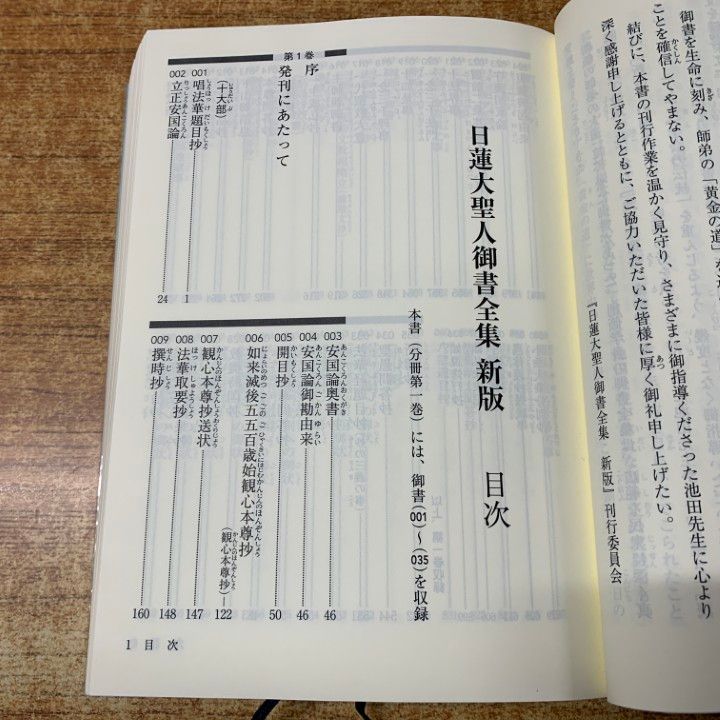 御書を生命に刻み、師弟の「黄金の道」を
ことを確信してやまない。
結びに、本書の刊行作業を温かく見守り、さまざまに御指導くださった池田先生に心より
深く感謝申し上げるとともに、ご協力いただいた皆様に厚く御礼申し上げたい。
『日蓮大聖人御書全集 新版』刊行委員会
日蓮大聖人御書全集 新版 目次
本書(分冊第一巻)には、御書(001)~(035)を収録
第1巻
序
発刊にあたって
(十大部)
001 唱法華題目抄 1
002 立正安国論 24
003 安国論奥書 46
004 安国論御勘由来 46
005 開目抄 50
006 如来滅後五五百歳始観心本尊抄(観心本尊抄) 122
007 観心本尊抄送状 147
008 法華取要抄 148
009 撰時抄 160
1 目次